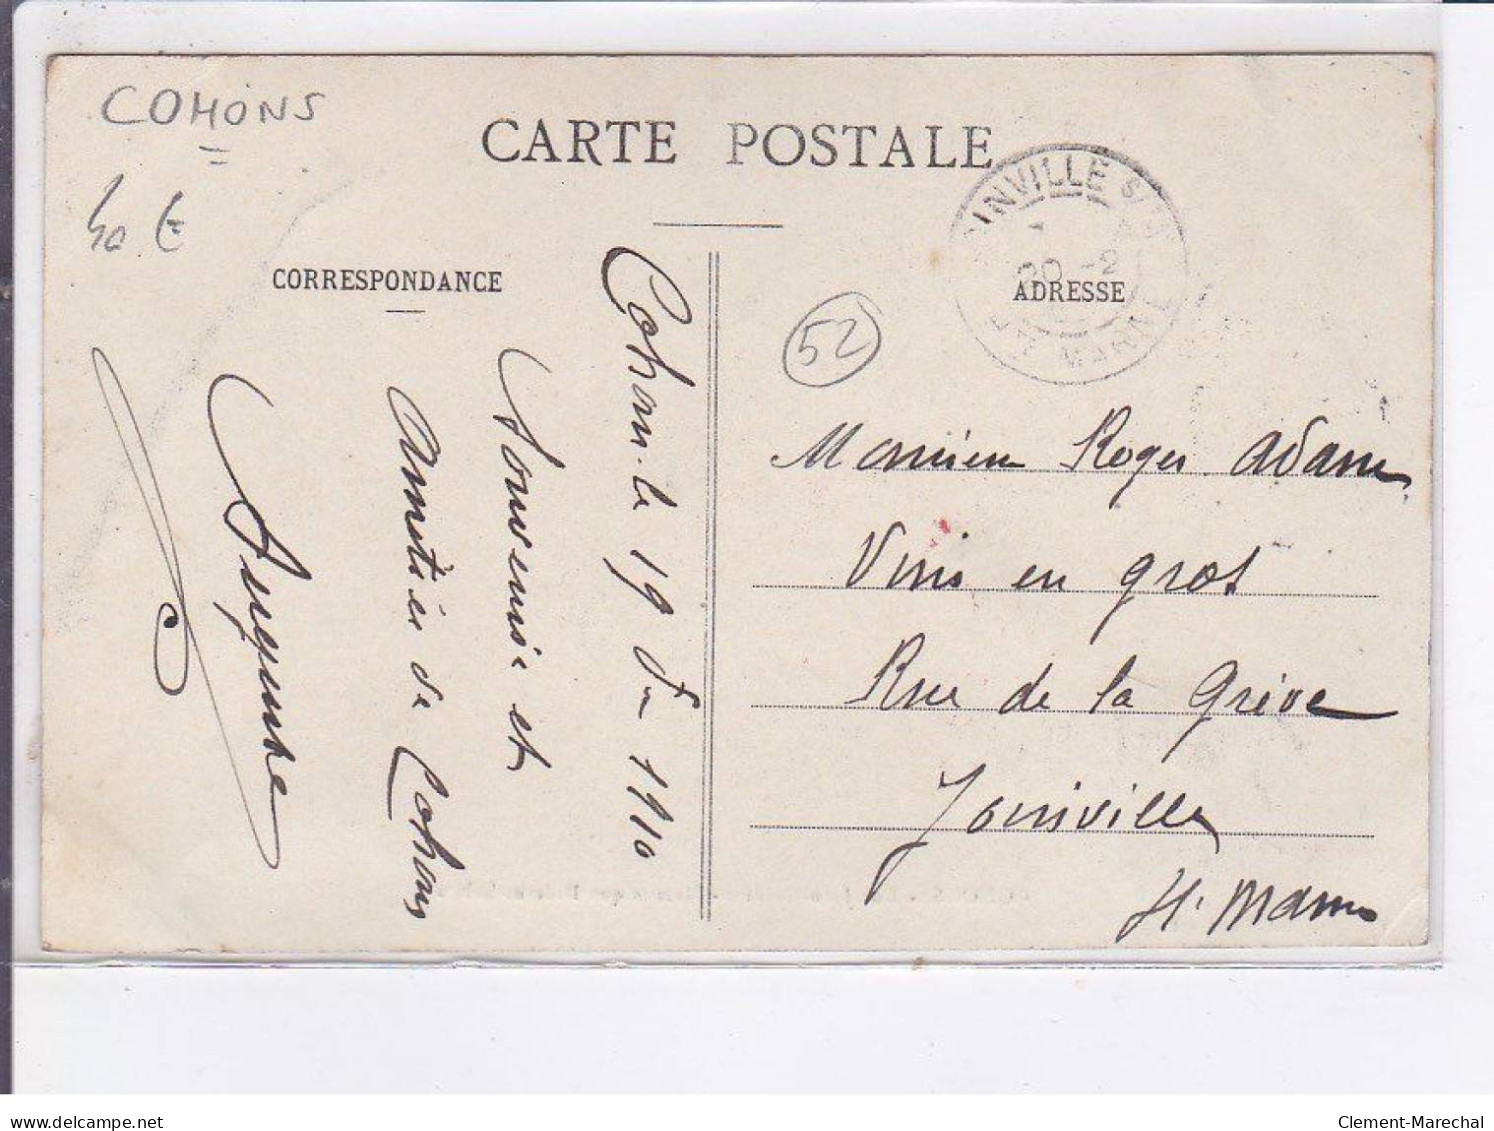 COHONS
40 €
CARTE POSTALE
CORRESPONDANCE
ADRESSE
INVILLE S/
20 -2
MARNE
52
Cohons le 19 1910
Souvenir et
Amitiés de Cohons
Monsieur Roger Adam
Vins en gros
Rue de la Grève
Joinville
Hte Marne
delcampe.net
Clement-Marechal